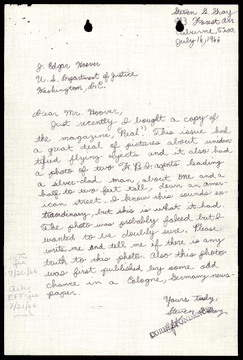 Steven G. Gray
July 16, 1966
J. Edgar Hoover
U. S. Department of Justice
Washington, D.C.
Dear Mr. Hoover,
Just recently I bought a copy of
the magazine, "Real". This issue had
a great deal of pictures about uniden-
tified flying objects and it also had
a photo of two F.B.I. agents leading
a silver-clad man about one and a
half to two feet tall, down an amer-
ican street. I know this sounds ex-
traordinary, but this is what it had.
The photo was probably faked but I
wanted to be doubly sure. Please
write me and tell me if there is any
truth to this photo. Also this photo
was first published by some odd
chance in a Cologne, Germany news-
paper.
Yours truly,
Steven Gray
7/20/66
7/21/66